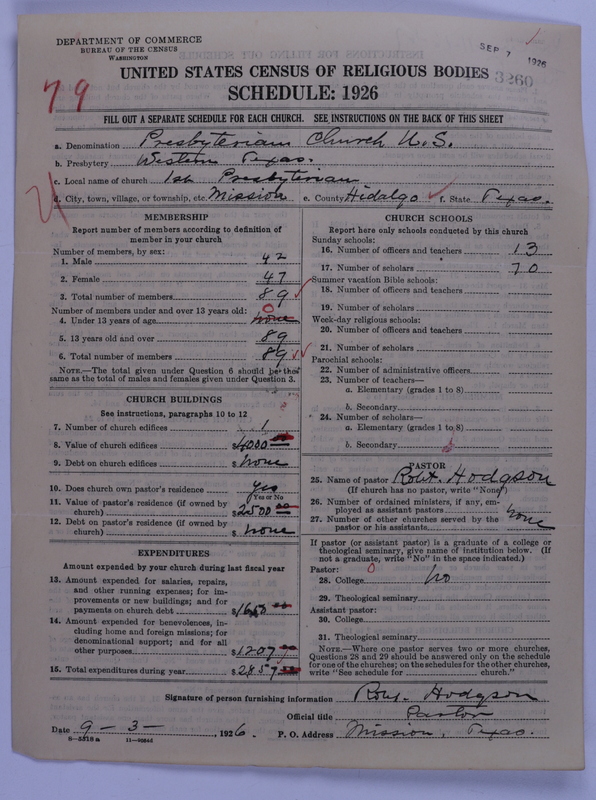 DEPARTMENT OF COMMERCE
BUREAU OF THE CENSUS
WASHINGTON
SEP 7 1926
3260
79
UNITED STATES CENSUS OF RELIGIOUS BODIES
SCHEDULE: 1926
FILL OUT A SEPARATE SCHEDULE FOR EACH CHURCH. SEE INSTRUCTIONS ON THE BACK OF THIS SHEET
a. Denomination Presbyterian Church U.S.
b. Presbytery Western Texas.
c. Local name of church 1st Presbyterian
d. City, town, village, or township, etc. Mission e. County Hidalgo f. State Texas.
MEMBERSHIP
Report number of members according to definition of
member in your church
Number of members, by sex:
1. Male 42
2. Female 47
3. Total number of members 89
Number of members under and over 13 years old:
4. Under 13 years of age none 0
5. 13 years old and over 89
6. Total number of members 89
NOTE.—The total given under Question 6 should be the
same as the total of males and females given under Question 3.
CHURCH BUILDINGS
See instructions, paragraphs 10 to 12
7. Number of church edifices 1
8. Value of church edifices $4000
9. Debt on church edifices $ none
10. Does church own pastor's residence yes
Yes or No
11. Value of pastor's residence (if owned by
church) $2500 00
12. Debt on pastor's residence (if owned by
church) $ none
EXPENDITURES
Amount expended by your church during last fiscal year
13. Amount expended for salaries, repairs,
and other running expenses; for im-
provements or new buildings; and for
payments on church debt $1650 00
14. Amount expended for benevolences, in-
cluding home and foreign missions; for
denominational support; and for all
other purposes $1207
15. Total expenditures during year $2857
CHURCH SCHOOLS
Report here only schools conducted by this church
Sunday schools:
16. Number of officers and teachers 13
17. Number of scholars 70
Summer vacation Bible schools:
18. Number of officers and teachers
19. Number of scholars
Week-day religious schools:
20. Number of officers and teachers
21. Number of scholars
Parochial schools:
22. Number of administrative officers
23. Number of teachers—
a. Elementary (grades 1 to 8)
b. Secondary
24. Number of scholars—
a. Elementary (grades 1 to 8)
b. Secondary
PASTOR
25. Name of pastor Robt. Hodgson
(If church has no pastor, write "None")
26. Number of ordained ministers, if any, em-
ployed as assistant pastors none
27. Number of other churches served by the
pastor or his assistants
If pastor (or assistant pastor) is a graduate of a college or
theological seminary, give name of institution below. (If
not a graduate, write "No" in the space indicated.)
Pastor: 0
28. College no
29. Theological seminary
Assistant pastor:
30. College
31. Theological seminary
NOTE.—Where one pastor serves two or more churches,
Questions 28 and 29 should be answered only on the schedule
for one of the churches; on the schedules for the other churches,
write "See schedule for church."
Signature of person furnishing information Robt. Hodgson
Official title Pastor
Date 9 - 3 - , 1926. P. O. Address Mission, Texas.